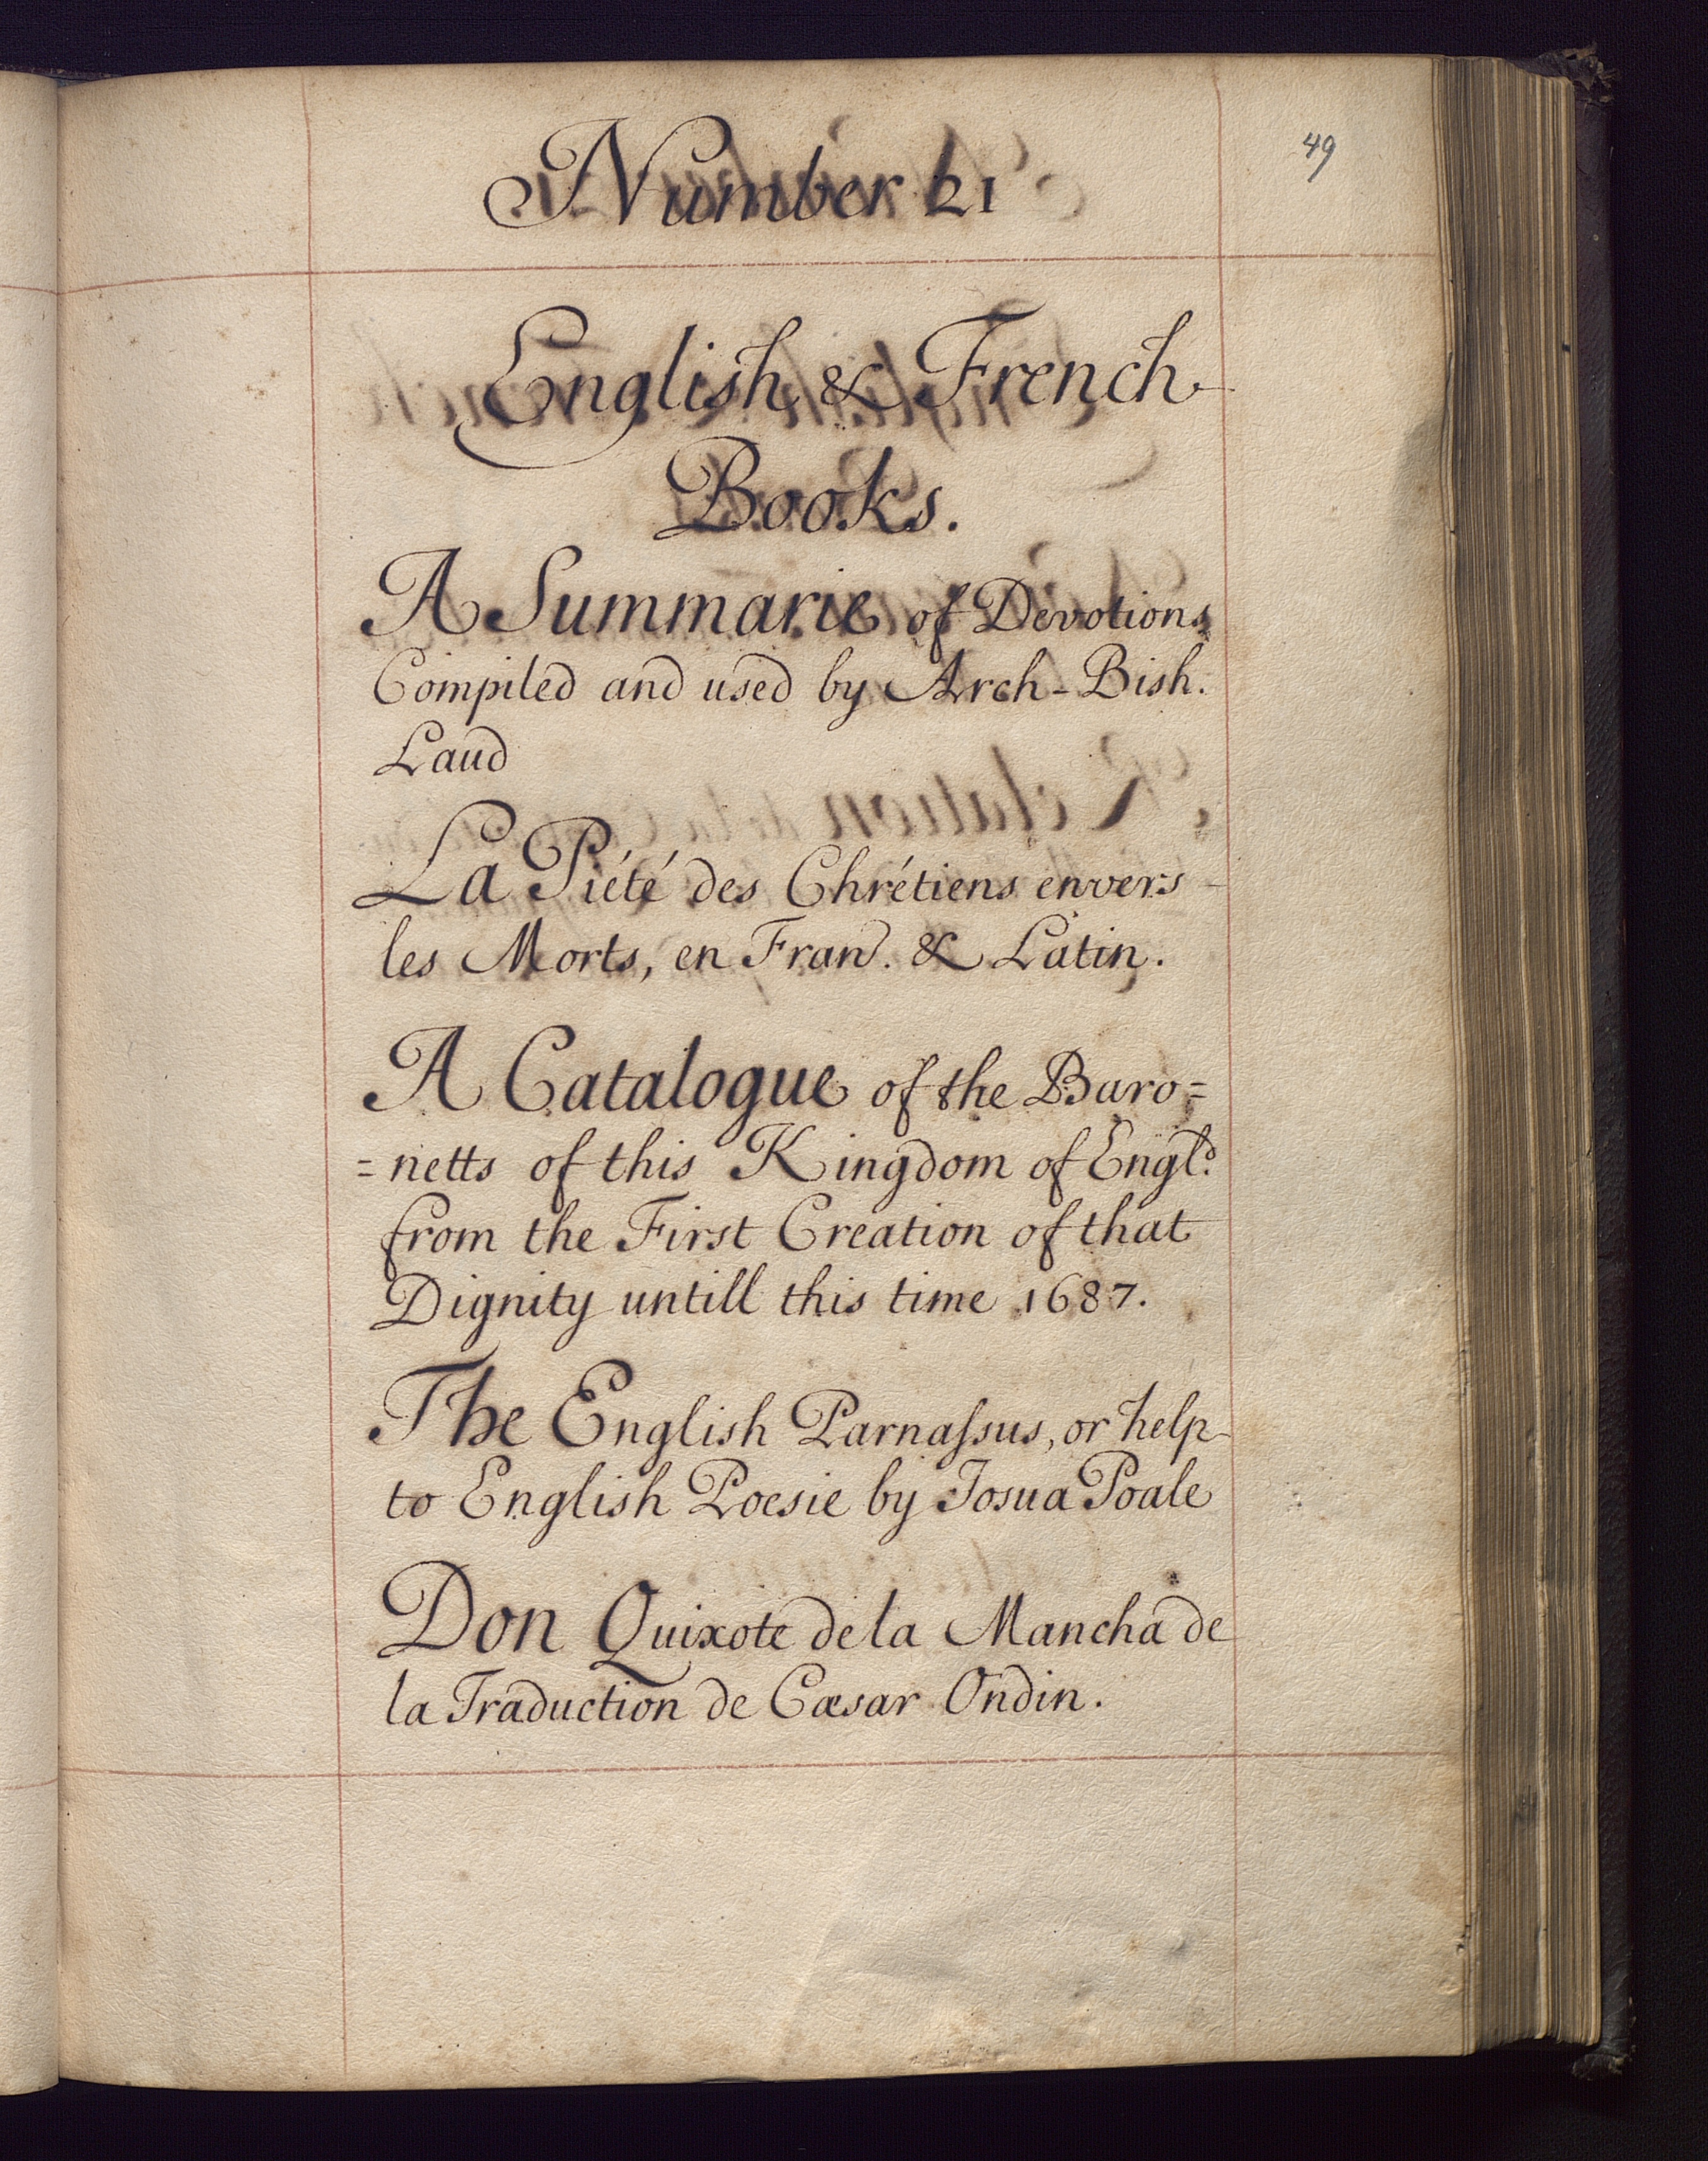 49
Number 21
English & French
Books.
A Summarie of Devotions
Compiled and used by Arch-Bish.
Laud
La Piété des Chrétiens envers
les Morts, en Fran. & Latin.
A Catalogue of the Baro=
=netts of this Kingdom of Engl.d
from the First Creation of that
Dignity untill this time 1687.
The English Parnaſsus, or help
to English Poesie by Josua Poale
Don Quixote de la Mancha de
la Traduction de Cæsar Ondin.